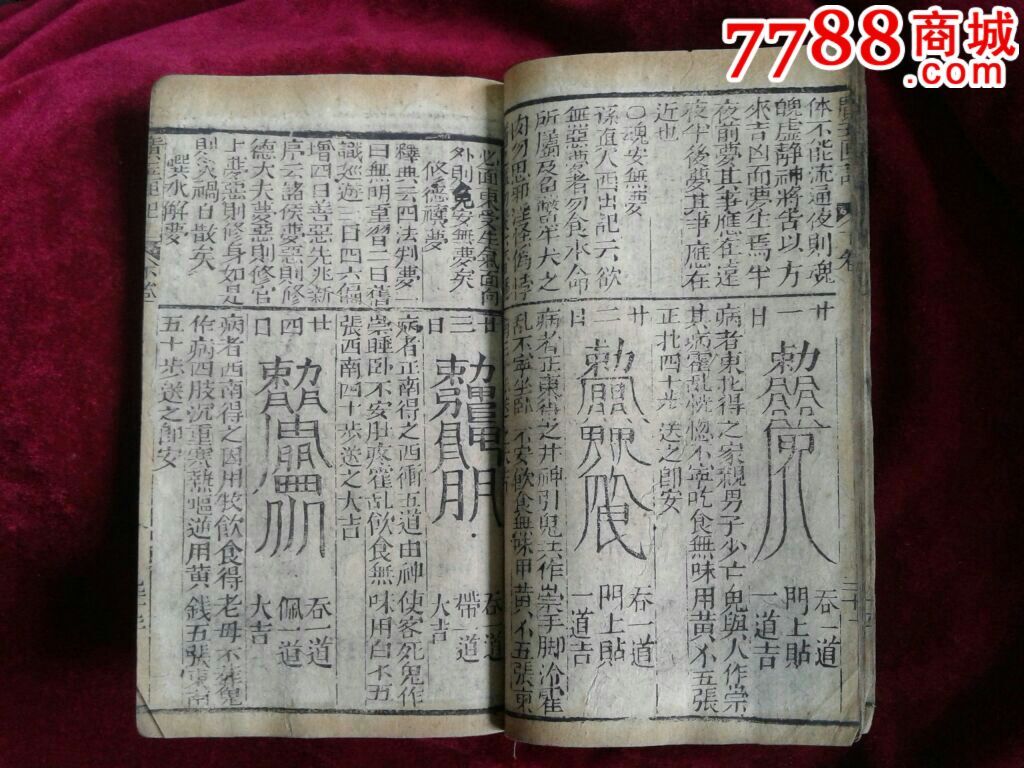 7788商城
.com
体不能流通夜則魂
魄虚静神將告以方
來吉凶而夢生焉半
夜前夢其事應在遠
夜半後夢其事應在
近也
○魂安無夢
孫真人西出記云欲
無惡夢者勿食水命
所屬及魚鱉羊犬之
肉勿思邪
必面東受生氣面向
外則免安無夢矣
修德禳夢
釋典云四法判夢一
曰無明熏習二曰舊
識廵遊三曰四六偏
增四曰善惡先兆新
序云諸侯夢惡則修
德大夫夢惡則修官
士夢惡則修身如是
則
禍自散矣
噀水解夢
廿一日
吞一道
門上貼
一道吉
病者東北得之家親男子少亡鬼與人作崇
其病霍亂恍惚不寧吃食無味用黄不五張
正北四十步送之即安
廿二日
吞一道
門上貼
一道吉
病者正東得之井神引鬼
作崇手脚冷霍
亂不寧坐卧不安飲食無味用黄不五張東
廿三日
吞一道
帶一道
大吉
病者正南得之西衝五道由神使客死鬼作
崇睡卧不安肚
霍乱飲食無味用白不五
張西南四十步送之大吉
廿四日
吞一道
佩一道
大吉
病者西南得之因用牧飲食得老母不葬鬼
作病四肢沉重寒熱嘔逆用黄錢五張東南
五十步送之即安